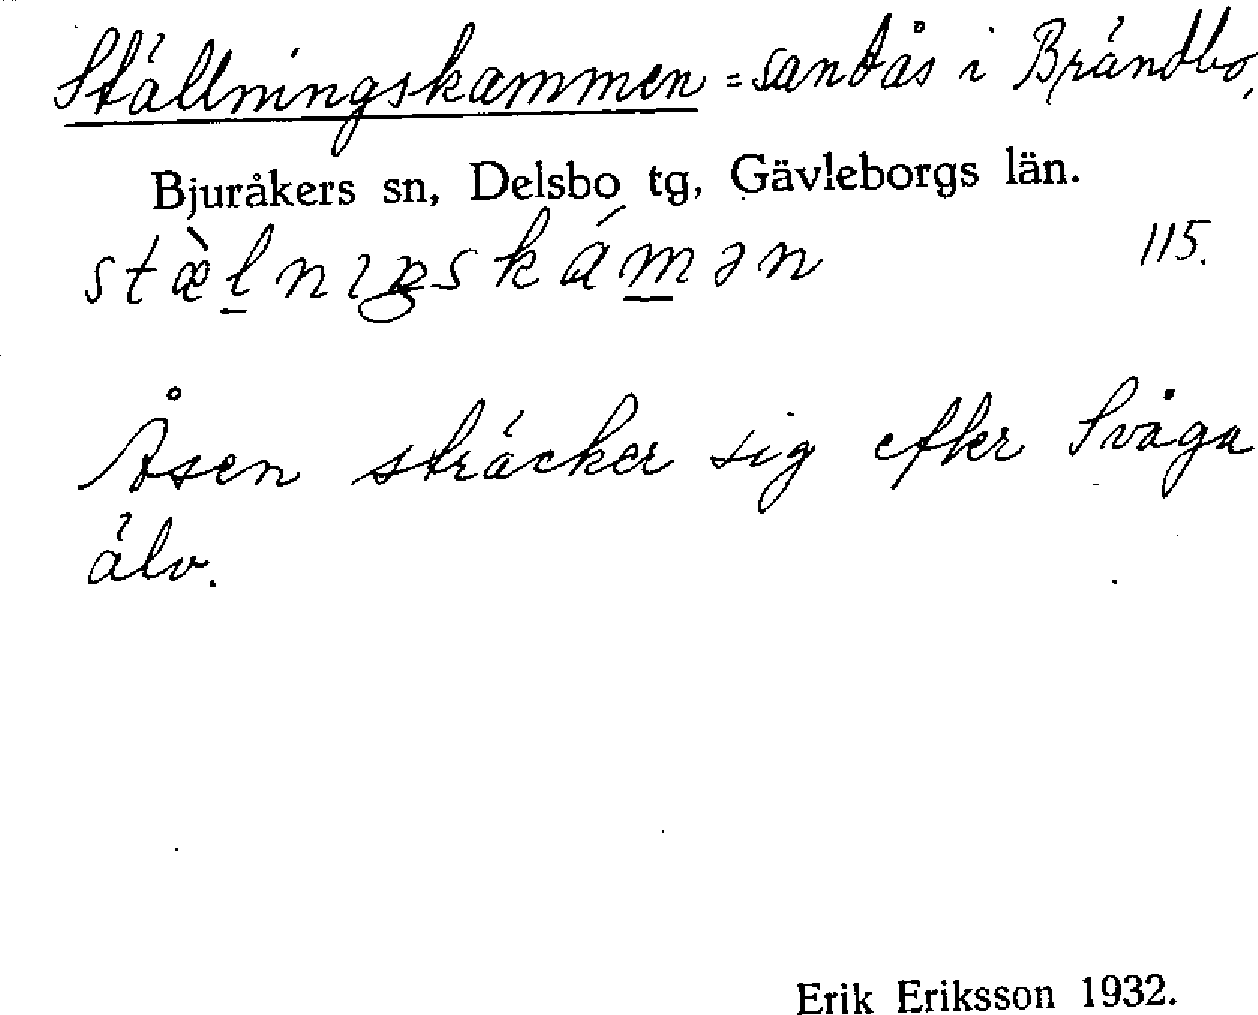 Ställningskammen = sandås i Brändbo,
Bjuråkers sn, Delsbo tg, Gävleborgs län.
stæ̀l̠nıŋskám̠ən 115.
Åsen sträcker sig efter Svåga
älv.
Erik Eriksson 1932.